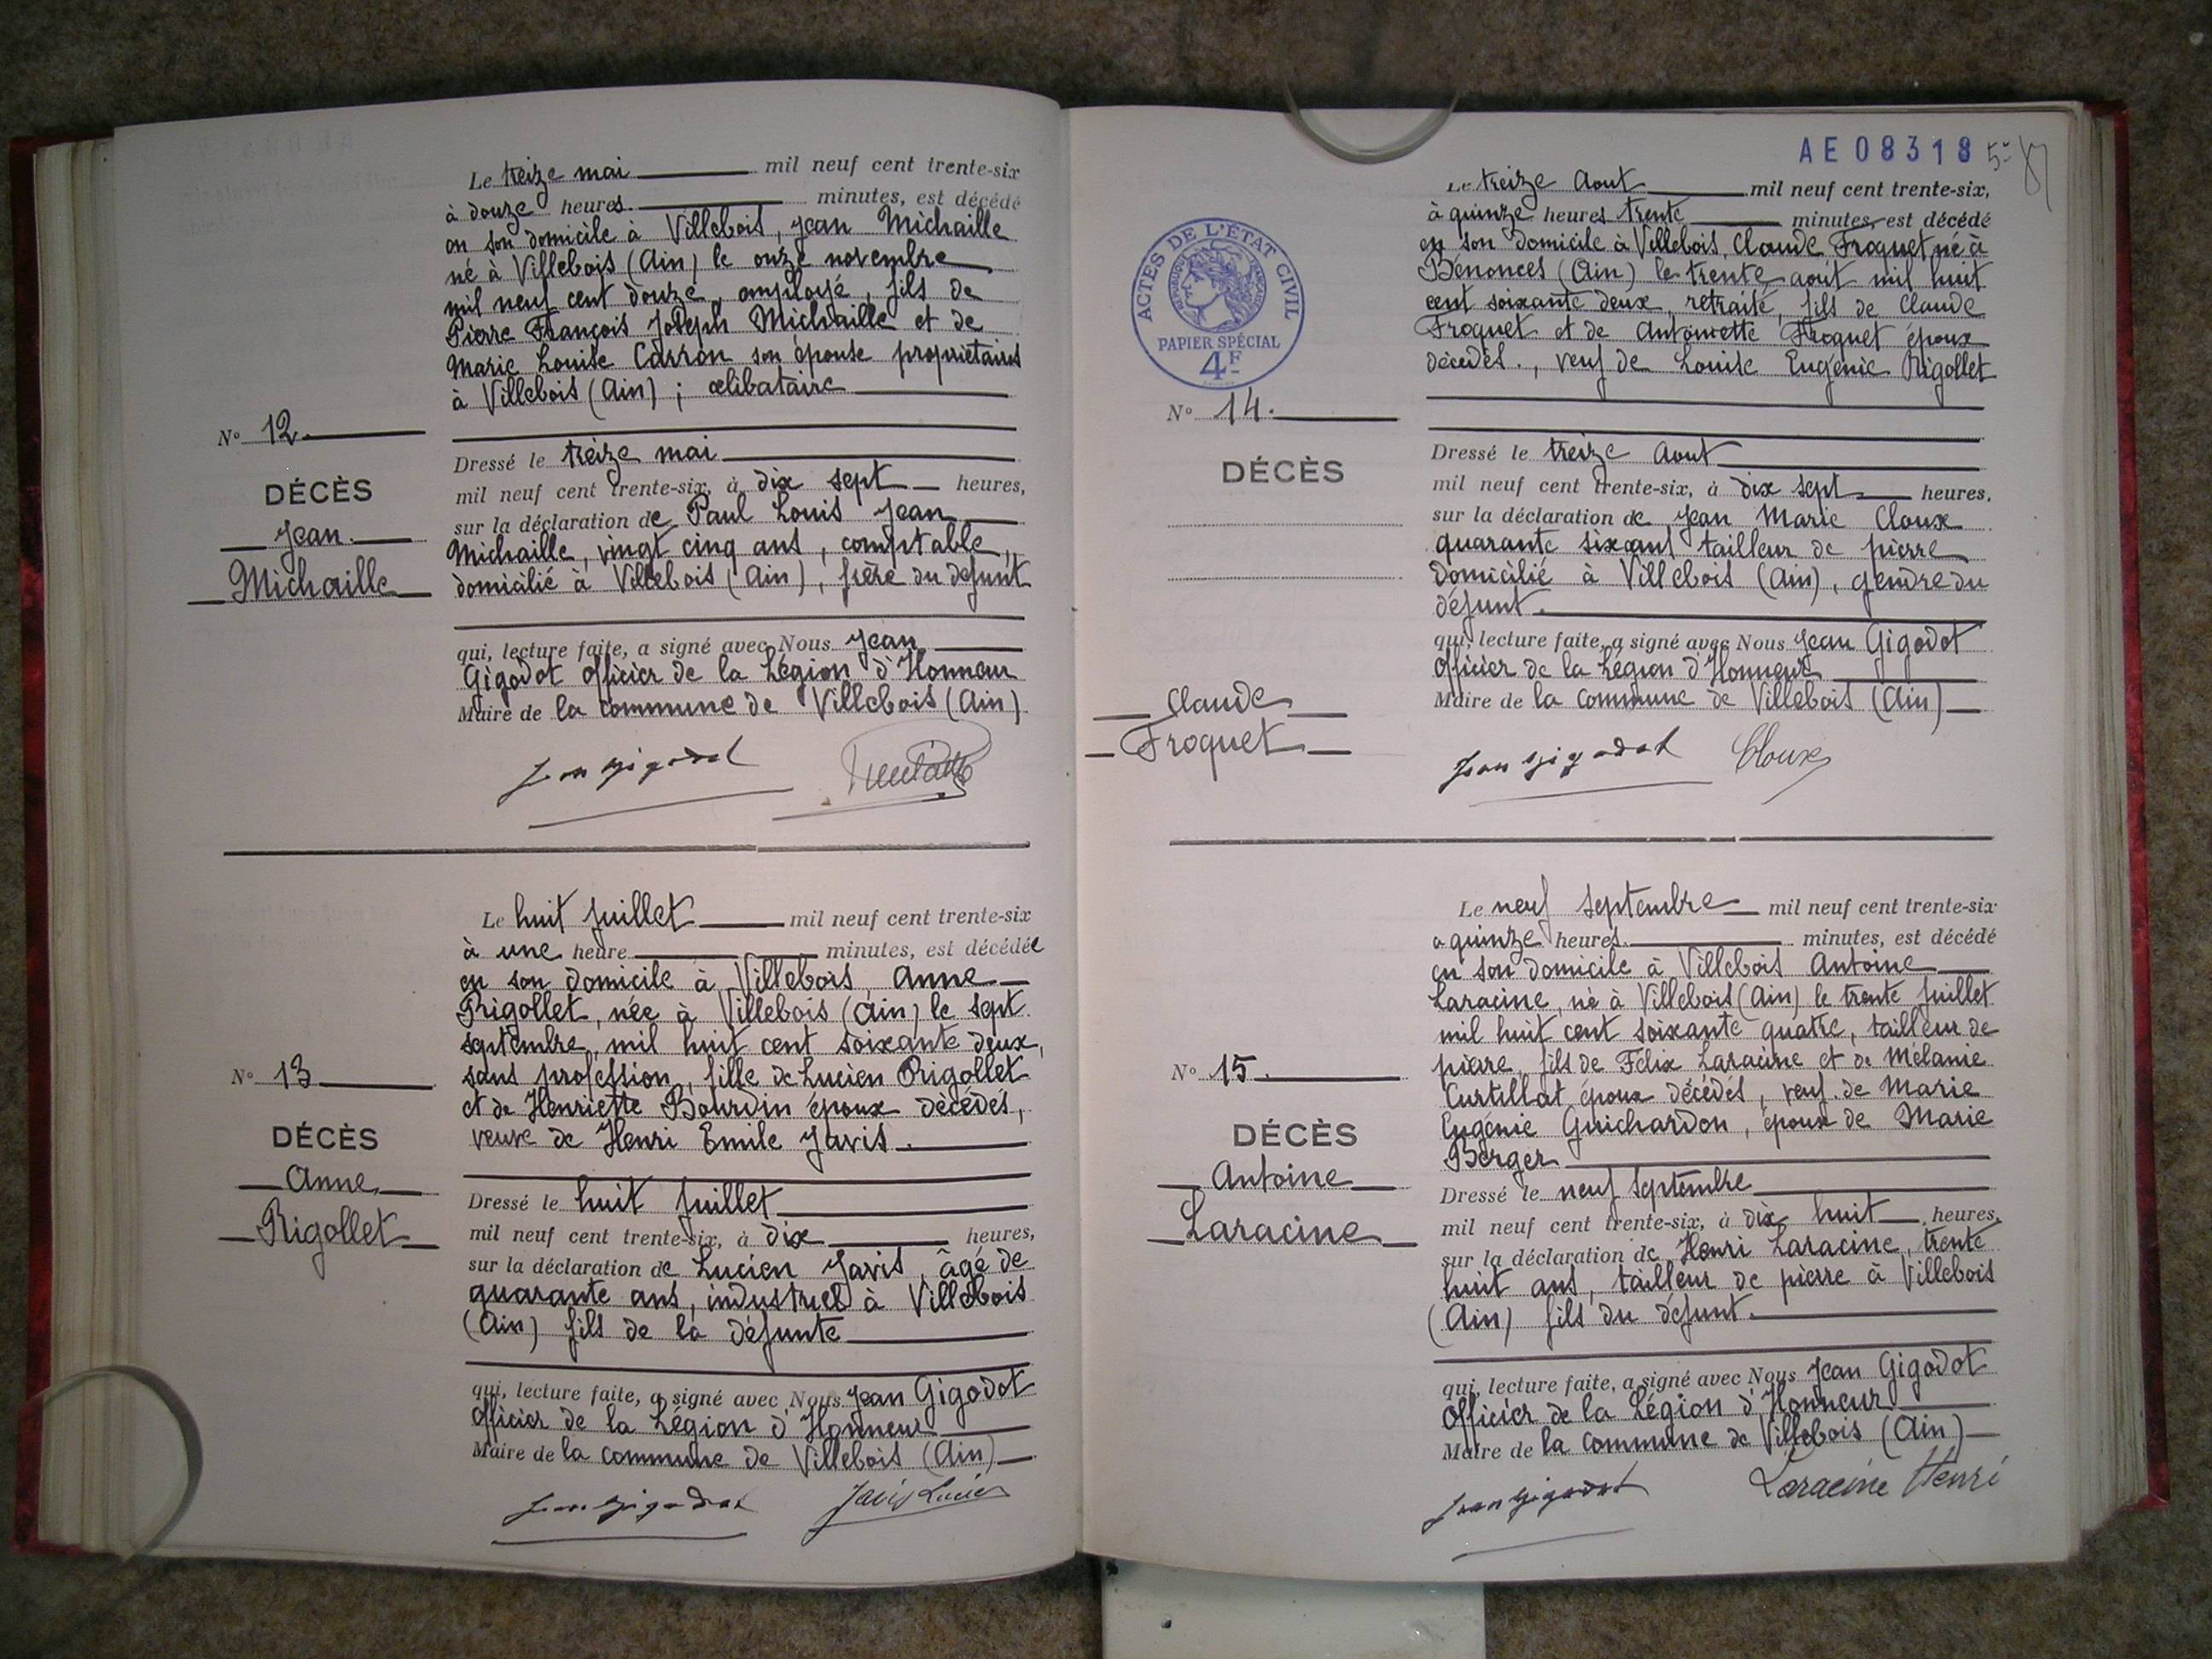 Le treize mai mil neuf cent trente-six
à douze heures minutes, est décédé
en son domicile à Villebois, Jean Michaille
né à Villebois (Ain) le onze novembre
mil neuf cent douze, employé, fils de
Pierre François Joseph Michaille et de
Marie Louise Carron son épouse propriétaires
à Villebois (Ain) ; célibataire
N° 12.
DÉCÈS
Jean
Michaille
Dressé le treize mai
mil neuf cent trente-six, à dix sept heures,
sur la déclaration de Paul Louis Jean
Michaille, vingt cinq ans, comptable,
domicilié à Villebois (Ain), frère du défunt
qui, lecture faite, a signé avec Nous Jean
Gigodot officier de la Légion d'Honneur
Maire de la commune de Villebois (Ain)
Jean Gigodot
Le huit juillet mil neuf cent trente-six
à une heure minutes, est décédée
en son domicile à Villebois, Anne
Rigollet, née à Villebois (Ain) le sept
septembre, mil huit cent soixante deux,
sans profession, fille de Lucien Rigollet
et de Henriette Bourdin époux décédés,
veuve de Henri Emile Javis.
N° 13
DÉCÈS
Anne
Rigollet
Dressé le huit juillet
mil neuf cent trente-six, à dix heures,
sur la déclaration de Lucien Javis, âgé de
quarante ans, industriel à Villebois
(Ain) fils de la défunte
qui, lecture faite, a signé avec Nous Jean Gigodot
officier de la Légion d'Honneur
Maire de la commune de Villebois (Ain)
Jean Gigodot Javis Lucien
AE08318
Le treize Aout mil neuf cent trente-six,
à quinze heures trente minutes, est décédé
en son domicile à Villebois, Claude Froquet né à
Bénonces (Ain) le trente aout mil huit
cent soixante deux, retraité, fils de Claude
Froquet et de Antoinette Froquet époux
décédés., veuf de Louise Eugénie Rigollet
ACTES DE L'ÉTAT CIVIL
RÉPUBLIQUE FRANÇAISE
PAPIER SPÉCIAL
4F
N° 14.
DÉCÈS
Claude
Froquet
Dressé le treize Aout
mil neuf cent trente-six, à dix sept heures,
sur la déclaration de Jean Marie Cloux
quarante six ans tailleur de pierre
domicilié à Villebois (Ain), gendre du
défunt.
qui, lecture faite, a signé avec Nous Jean Gigodot
officier de la Légion d'Honneur
Maire de la commune de Villebois (Ain)
Jean Gigodot Cloux
Le neuf septembre mil neuf cent trente-six
à quinze heures minutes, est décédé
en son domicile à Villebois Antoine
Laracine, né à Villebois (Ain) le trente juillet
mil huit cent soixante quatre, tailleur de
pierre, fils de Félix Laracine et de Mélanie
Curtillat époux décédés, veuf de Marie
Eugénie Guichardon, époux de Marie
Berger
N° 15.
DÉCÈS
Antoine
Laracine
Dressé le neuf septembre
mil neuf cent trente-six, à dix huit heures,
sur la déclaration de Henri Laracine, trente
huit ans, tailleur de pierre à Villebois
(Ain) fils du défunt.
qui, lecture faite, a signé avec Nous Jean Gigodot
officier de la Légion d'Honneur
Maire de la commune de Villebois (Ain)
Jean Gigodot Laracine Henri